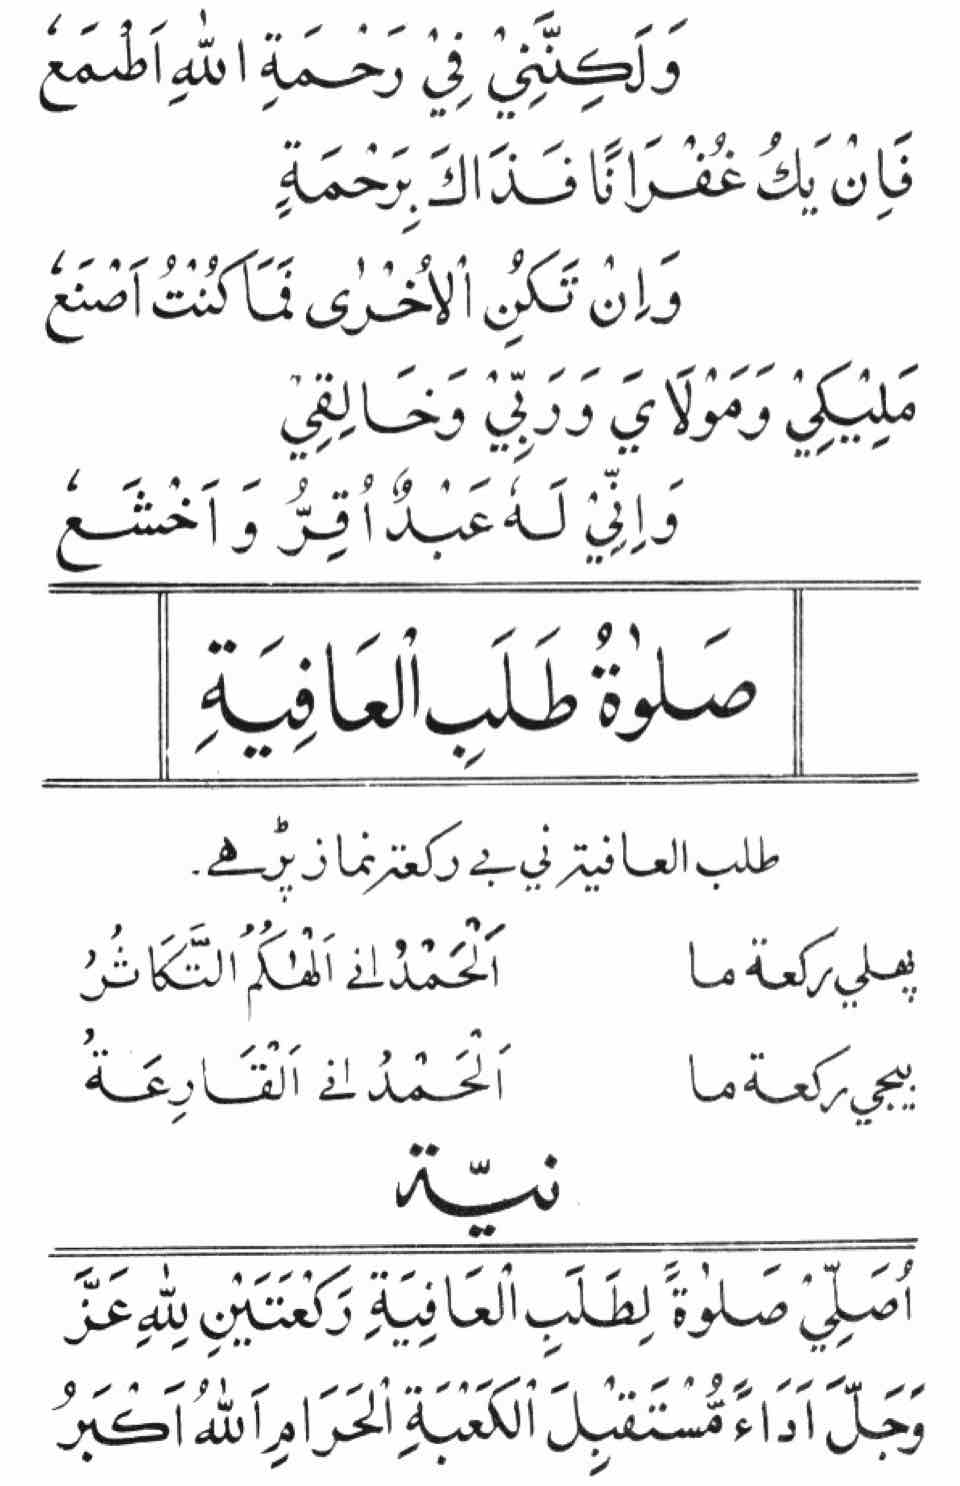 وَلَكِنَّنِيْ فِيْ رَحْمَةِ اللهِ اَطْمَعُ
فَاِنْ يَكُ غُفْرَانًا فَذَاكَ بِرَحْمَةٍ
وَاِنْ تَكُنِ الْاُخْرٰى فَمَا كُنْتُ اَصْنَعُ
مَلِيْكِيْ وَمَوْلَايَ وَرَبِّيْ وَخَالِقِيْ
وَاِنِّيْ لَهُ عَبْدٌ اُقِرُّ وَاَخْشَعُ
صَلٰوةُ طَلَبِ الْعَافِيَةِ
طلب العافية ني بے ركعة نماز پڑھے.
پهلي ركعة ما اَلْحَمْدُ انے اَلْهٰىكُمُ التَّكَاثُرُ
بيجي ركعة ما اَلْحَمْدُ انے اَلْقَارِعَةُ
نيّة
اُصَلِّيْ صَلٰوةً لِطَلَبِ الْعَافِيَةِ رَكْعَتَيْنِ لِلّٰهِ عَزَّ
وَجَلَّ اَدَاءً مُّسْتَقْبِلَ الْكَعْبَةِ الْحَرَامِ اَللهُ اَكْبَرُ